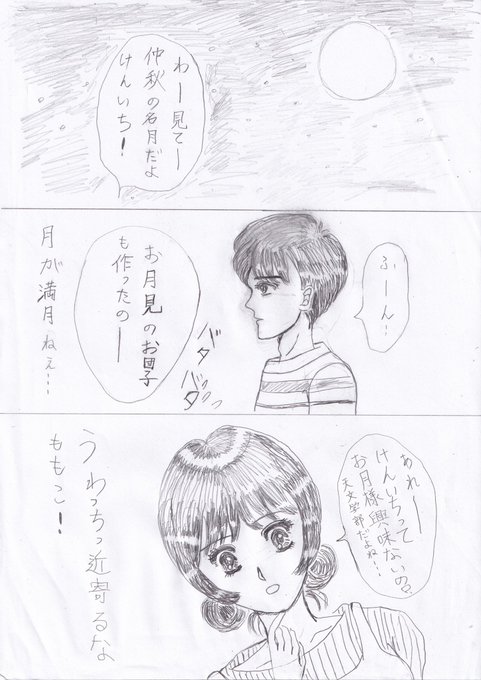 わー見てー
仲秋の名月だよ
けんいち！
ふーん！
お月見のお団子
も作ったのー
バタ
バタッ
月が満月ねぇ…
あれー
けんいちって
お月様興味ないの？
天文学部だよね！！
うわっちっ近寄るな
ももこ！